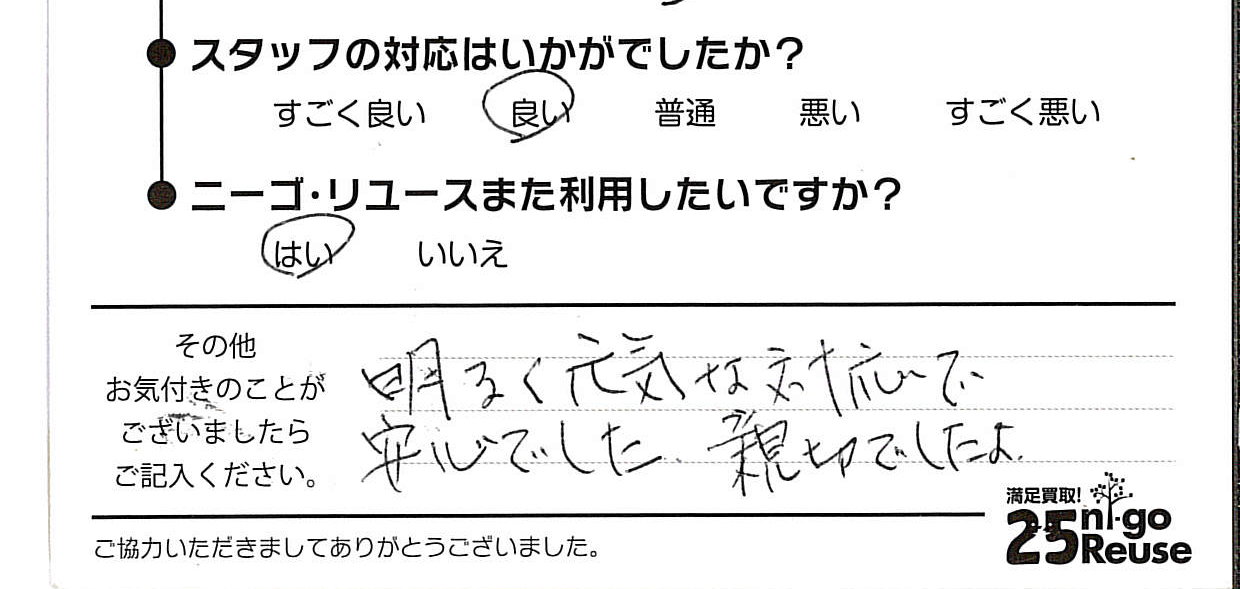 スタッフの対応はいかがでしたか？
すごく良い 良い 普通 悪い すごく悪い
ニーゴ・リユースまた利用したいですか？
はい いいえ
その他
お気付きのことが
ございましたら
ご記入ください。
明るく元気な対応で
安心でした. 親切でしたよ.
満足買取!
25 ni-go
Reuse
ご協力いただきましてありがとうございました。